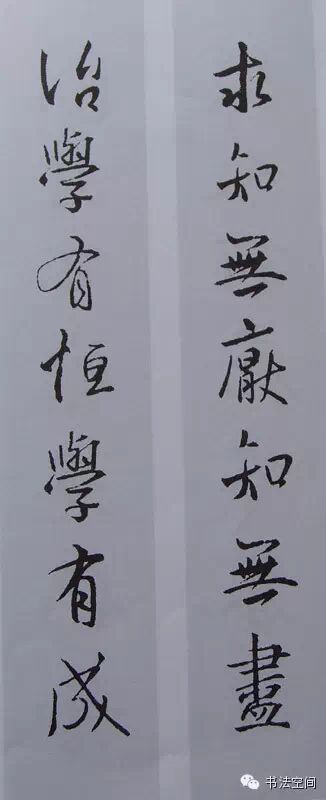 求知無厭知無盡
治學有恒學有成
书法空间